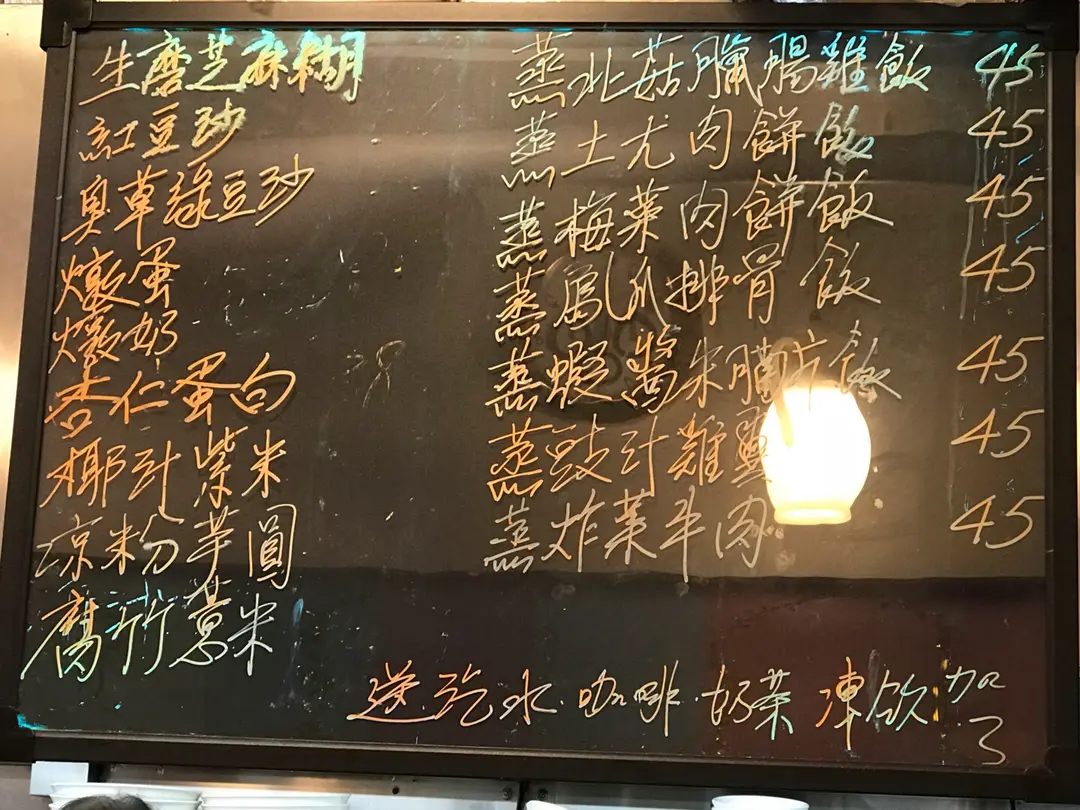 生磨芝麻糊
紅豆沙
臭草綠豆沙
燉蛋
燉奶
杏仁蛋白
椰汁紫米
涼粉芋圓
腐竹薏米
蒸北菇臘腸雞飯 45
蒸土尤肉餅飯 45
蒸梅菜肉餅飯 45
蒸鳳爪排骨飯 45
蒸蝦醬朱腩片飯 45
蒸豉汁雞 45
蒸炸菜牛肉 45
送汽水·咖啡·奶茶 凍飲加3